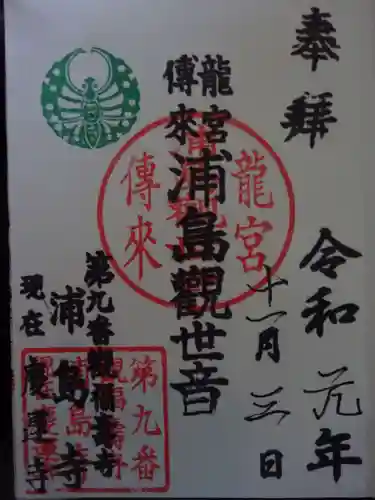 奉拝
令和元年
十一月三日
龍宮
傳來
浦島觀世音
龍宮
傳來
第九番觀福壽寺
浦島寺
現在慶運寺
第九番